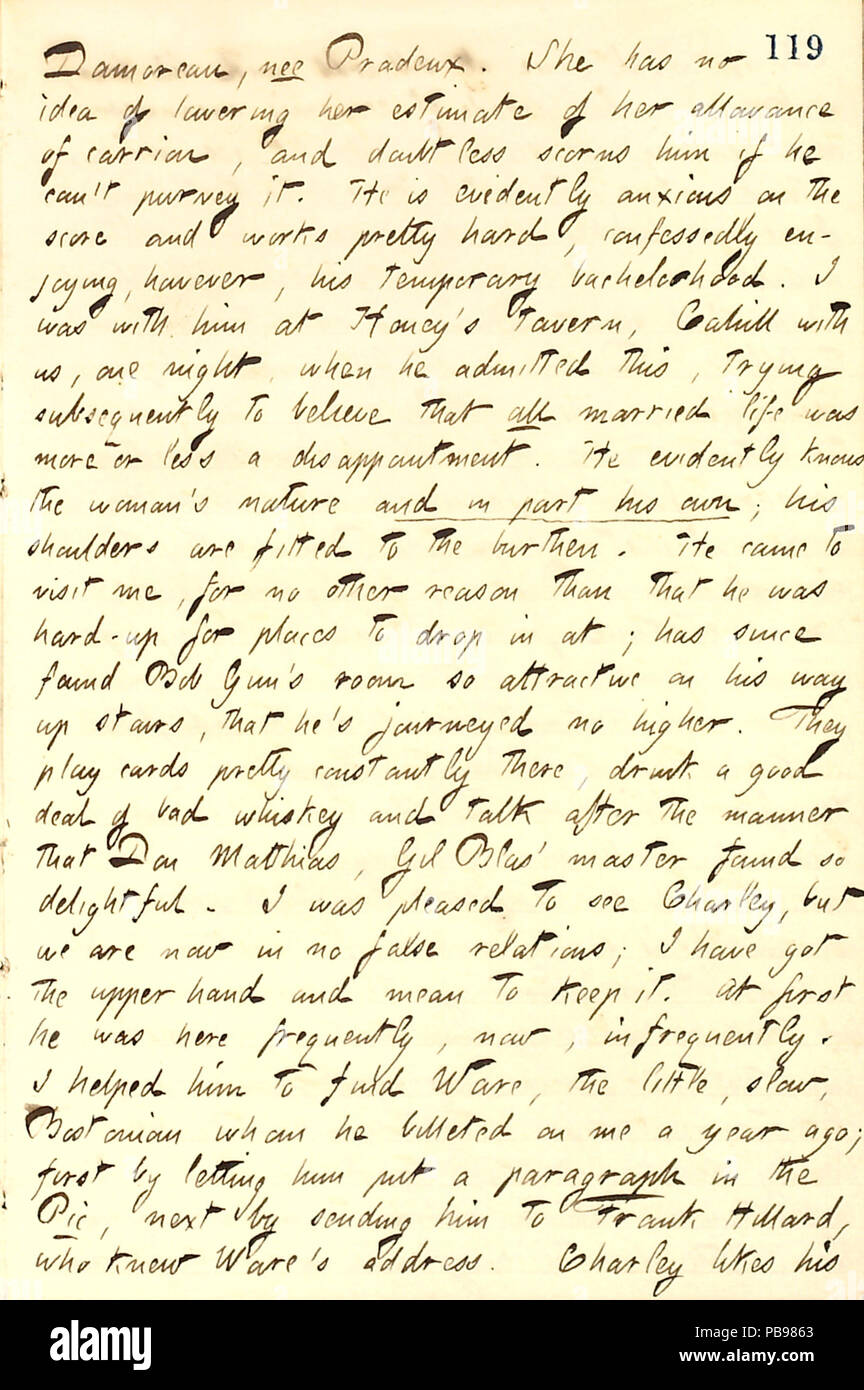 119
Damoreau, nee Pradeux. She has no
idea of lowering her estimate of her allowance
of carrion, and doubtless scorns him if he
can't purvey it. He is evidently anxious on the
score and works pretty hard, confessedly en-
joying, however, his temporary bachelorhood. I
was with him at Honey's tavern, Cahill with
us, one night, when he admitted this, trying
subsequently to believe that all married life was
more or less a disappointment. He evidently knows
the woman's nature and in part his own; his
shoulders are fitted to the burthen. He came to
visit me, for no other reason than that he was
hard-up for places to drop in at; has since
found Bob Gun's room so attractive on his way
up stairs, that he's journeyed no higher. They
play cards pretty constantly there, drink a good
deal of bad whiskey and talk after the manner
that Don Matthias, Gil Blas' master found so
delightful. I was pleased to see Charley, but
we are now in no false relations; I have got
the upper hand and mean to keep it. At first
he was here frequently, now, infrequently.
I helped him to find Ware, the little, slow,
Bostonian whom he billeted on me a year ago;
first by letting him put a paragraph in the
Pic, next by sending him to Frank Hillard,
who knew Ware's address. Charley likes his
alamy
Image ID: PB9863
www.alamy.com